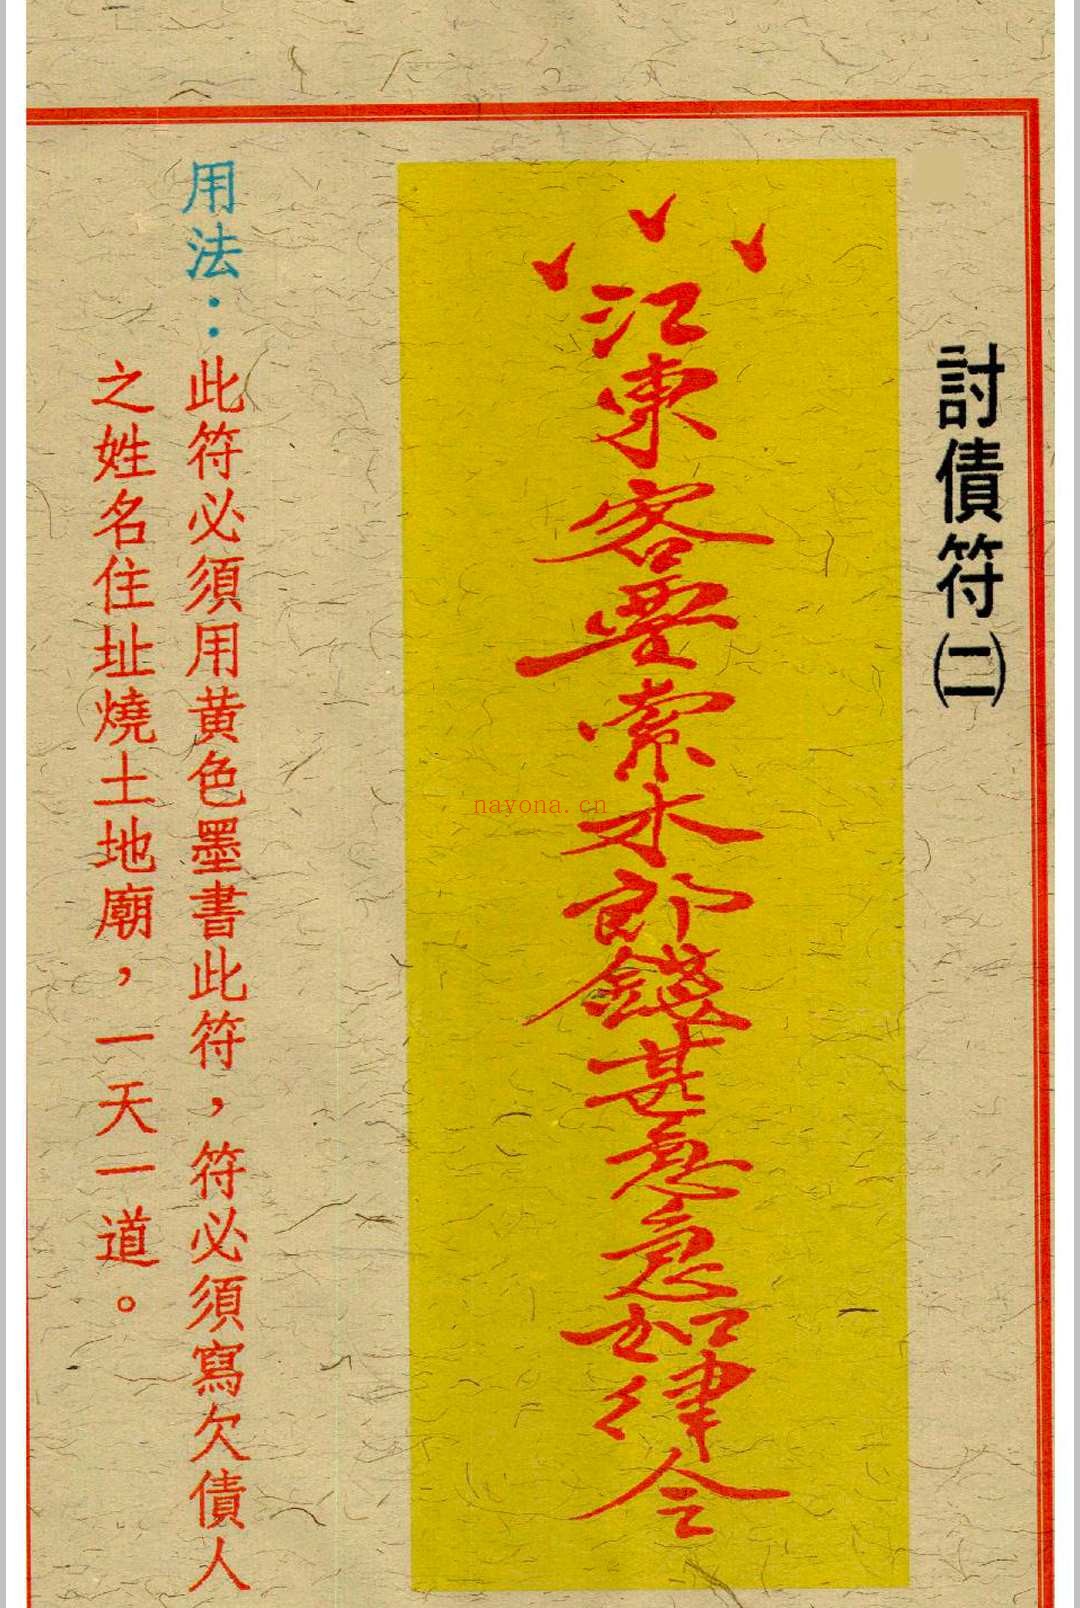 討債符(二)
江東客要索木郎錢甚急急如律令
用法：此符必須用黄色墨書此符，符必須寫欠債人
之姓名住址燒土地廟，一天一道。
nayona.cn